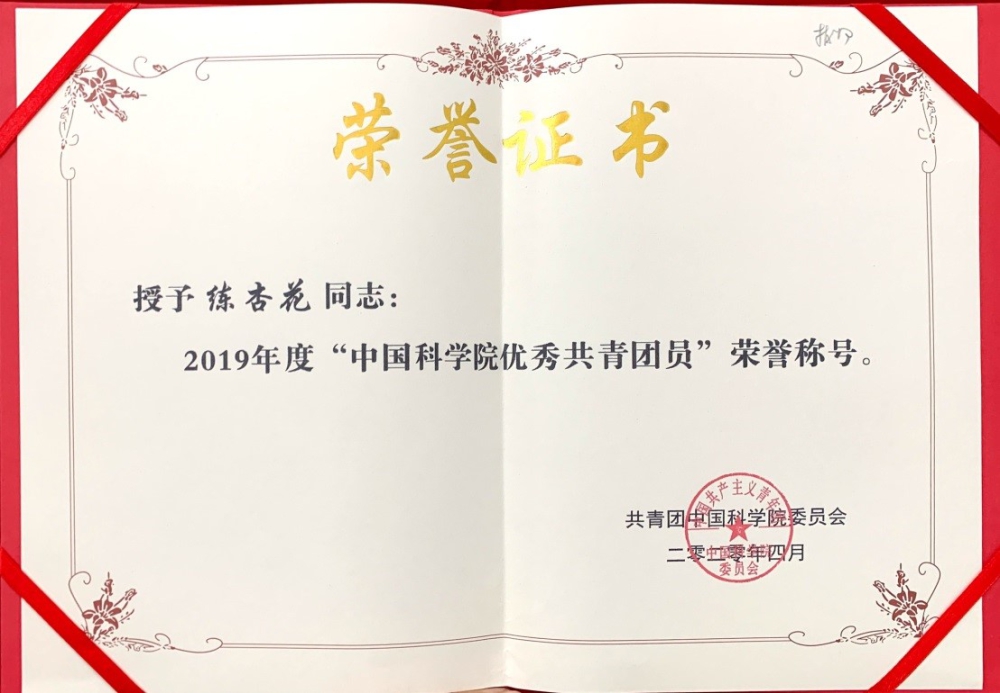 荣誉证书
授予 练杏花 同志：
2019年度“中国科学院优秀共青团员”荣誉称号。
共青团中国科学院委员会
二零二零年四月
中国共产主义青年团
中国科学院
委员会